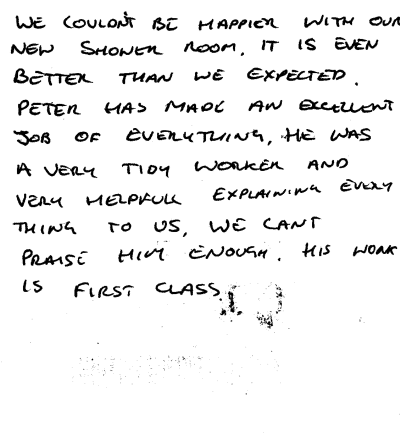 WE COULDN'T BE HAPPIER WITH OUR
NEW SHOWER ROOM, IT IS EVEN
BETTER THAN WE EXPECTED.
PETER HAS MADE AN EXCELLENT
JOB OF EVERYTHING, HE WAS
A VERY TIDY WORKER AND
VERY HELPFULL EXPLAINING EVERY
THING TO US, WE CANT
PRAISE HIM ENOUGH. HIS WORK
IS FIRST CLASS